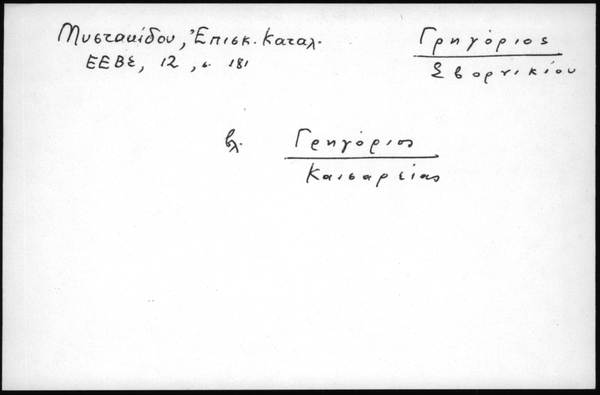 Μυστακίδου, Ἐπισκ. Καταλ.
ΕΕΒΣ, 12, σ. 181
Γρηγόριος
Σβορνικίου
βλ. Γρηγόριος
Καισαρείας